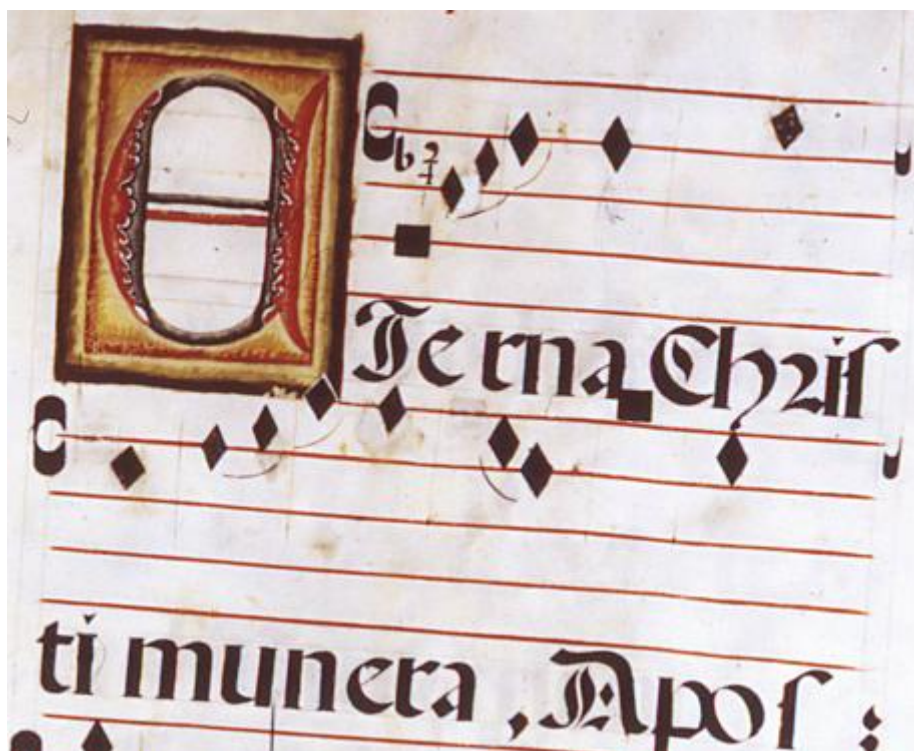 Æ Terna Chris
ti munera , Apos :